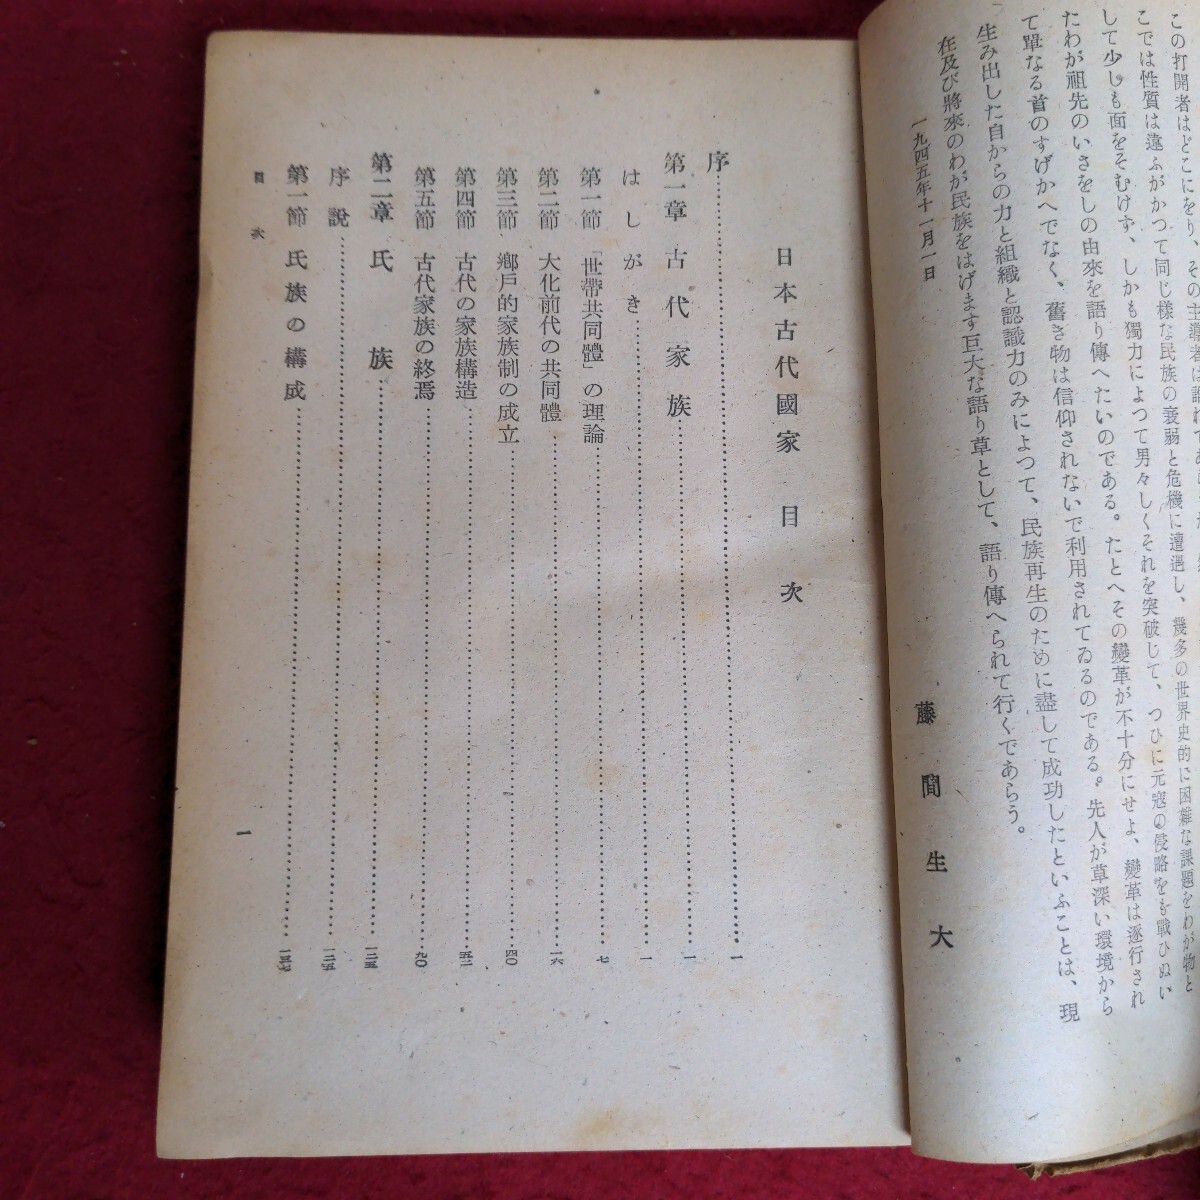 この打開者はどこにをり、その主導者は誰れであ
こでは性質は違ふがかつて同じ様な民族の衰弱と危機に遭遇し、幾多の世界史的に困難な課題をわが物と
して少しも面をそむけず、しかも獨力によつて男々しくそれを突破して、つひに元寇の侵略をも戰ひぬい
たわが祖先のいさをしの由來を語り傳へたいのである。たとへその變革が不十分にせよ、變革は逐行され
て單なる首のすげかへでなく、舊き物は信仰されないで利用されてゐるのである。先人が草深い環境から
生み出した自からの力と組織と認識力のみによつて、民族再生のために盡して成功したといふことは、現
在及び將來のわが民族をはげます巨大な語り草として、語り傳へられて行くであらう。
一九四五年十一月一日
藤間生大
日本古代國家 目次
序…………一
第一章 古代家族…………一
はしがき…………一
第一節 「世帶共同體」の理論…………七
第二節 大化前代の共同體…………一六
第三節 鄕戶的家族制の成立…………四〇
第四節 古代の家族構造…………五二
第五節 古代家族の終焉…………九〇
第二章 氏族…………一二五
序説…………一二五
第一節 氏族の構成…………一三七
目次
一